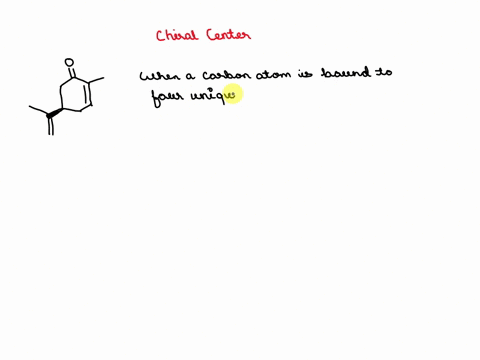 Chiral Center
O
When a carbon atom is bound to
four uniqu